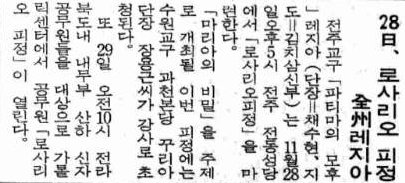 28日, 로사리오 피정
全州레지아
전주교구「파티마의 모후
」레지아(단장=채수현, 지
도=김치삼신부)는 11월28
일오후5시 전주 전동성당
에서「로사리오피정」을 마
련한다.
「마리아의 비밀」을 주제
로 개최될 이번 피정에는
수원교구 과천본당 꾸리아
단장 장용근씨가 강사로 초
청된다.
또 29일 오전10시 전라
북도내 내무부 산하 신자
공무원들을 대상으로 가톨
릭센터에서 공무원「로사리
오 피정」이 열린다.